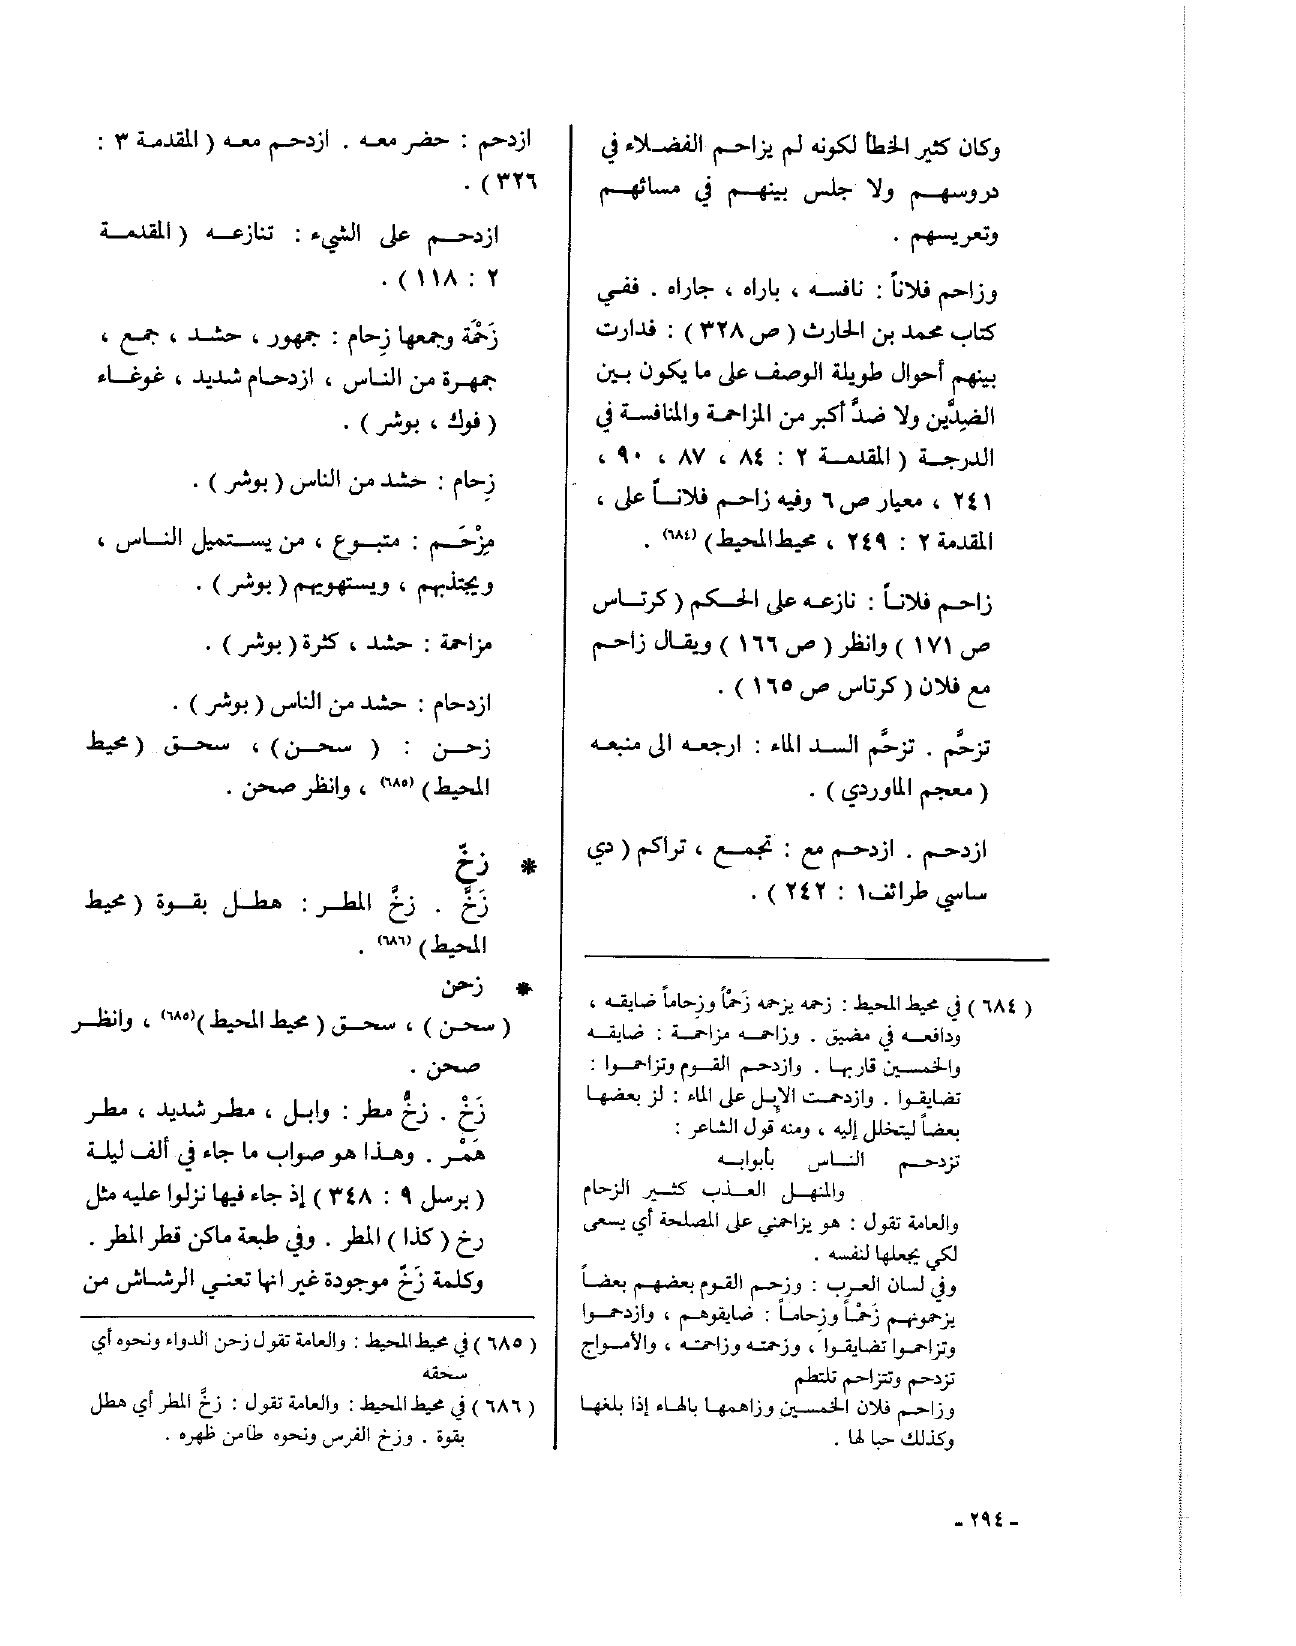 وكان كثير الخطأ لكونه لم يزاحم الفضلاء في
دروسهم ولا جلس بينهم في مسائلهم
وتعريسهم .
وزاحم فلاناً : نافسه ، باراه ، جاراه . ففي
كتاب محمد بن الحارث ( ص ٣٢٨ ) : فدارت
بينهم أحوال طويلة الوصف على ما يكون بين
الضِدَّين ولا ضدَّ أكبر من المزاحمة والمنافسة في
الدرجة ( المقدمة ٢ : ٨٤ ، ٨٧ ، ٩٠ ،
٢٤١ ، معيار ص ٦ وفيه زاحم فلاناً على ،
المقدمة ٢ : ٢٤٩ ، محيط المحيط) (٦٨٤) .
زاحم فلاناً : نازعه على الحكم ( كرتاس
ص ١٧١ ) وانظر ( ص ١٦٦ ) ويقال زاحم
مع فلان ( كرتاس ص ١٦٥ ) .
تزحَّم . تزحَّم السد الماء : ارجعه الى منبعه
( معجم الماوردي ) .
ازدحم . ازدحم مع : تجمع ، تراكم ( دي
ساسي طرائف١ : ٢٤٢ ) .
( ٦٨٤ ) في محيط المحيط : زحمه يزحمه زَحْماً وزِحاماً ضايقه ،
ودافعه في مضيق . وزاحمه مزاحمة : ضايقه
والخمسين قاربها . وازدحم القوم وتزاحموا :
تضايقوا . وازدحمت الإبل على الماء : لز بعضها
بعضاً ليتخلل إليه ، ومنه قول الشاعر :
تزدحم الناس بأبوابه
والمنهل العذب كثير الزحام
والعامة تقول : هو يزاحمني على المصلحة أي يسعى
لكي يجعلها لنفسه .
وفي لسان العرب : وزحم القوم بعضهم بعضاً
يزحمونهم زَحْماً وزِحاماً : ضايقوهم ، وازدحموا
وتزاحموا تضايقوا ، وزحمته وزاحمته ، والأمواج
تزدحم وتتزاحم تلتطم
وزاحم فلان الخمسين وزاهمها بالهاء إذا بلغها
وكذلك حبا لها .
ازدحم : حضر معه . ازدحم معه ( المقدمة ٣ :
٣٢٦ ) .
ازدحم على الشيء : تنازعه ( المقدمة
٢ : ١١٨ ) .
زَحْمَة وجمعها زِحام : جمهور ، حشد ، جمع ،
جمهرة من الناس ، ازدحام شديد ، غوغاء
( فوك ، بوشر ) .
زِحام : حشد من الناس ( بوشر ) .
مِزْحَم : متبوع ، من يستميل الناس ،
ويجتذبهم ، ويستهويهم ( بوشر ) .
مزاحمة : حشد ، كثرة ( بوشر ) .
ازدحام : حشد من الناس ( بوشر ) .
زحن : ( سحن ) ، سحق ( محيط
المحيط ) (٦٨٥) ، وانظر صحن .
* زخّ
زَخَّ . زخَّ المطر : هطل بقوة ( محيط
المحيط ) (٦٨٦) .
* زحن
( سحن ) ، سحق ( محيط المحيط )(٦٨٥) ، وانظر
صحن .
زَخّ . زخُّ مطر : وابل ، مطر شديد ، مطر
هَمْر . وهذا هو صواب ما جاء في ألف ليلة
( برسل ٩ : ٣٤٨ ) إذ جاء فيها نزلوا عليه مثل
رخ ( كذا ) المطر . وفي طبعة ماكن قطر المطر .
وكلمة زَخّ موجودة غير انها تعني الرشاش من
( ٦٨٥ ) في محيط المحيط : والعامة تقول زحن الدواء ونحوه أي
سحقه
( ٦٨٦ ) في محيط المحيط : والعامة تقول : زخَّ المطر أي هطل
بقوة . وزخ الفرس ونحوه طامن ظهره .
- ٢٩٤ -